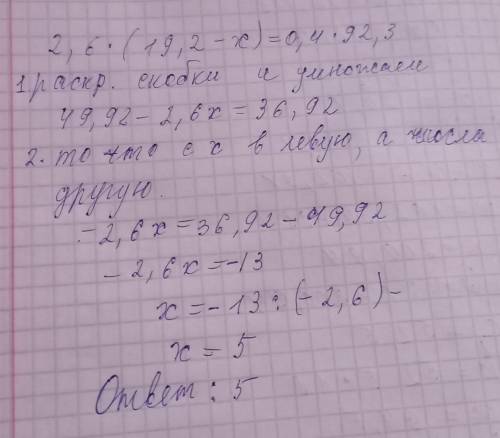 2,6 · (19,2 - x) = 0,4 · 92,3
1. раскр. скобки и умножаем
49,92 - 2,6x = 36,92
2. то что с х в левую, а числа
другую.
- 2,6x = 36,92 - 49,92
- 2,6x = -13
x = - 13 : (- 2,6) -
x = 5
Ответ : 5